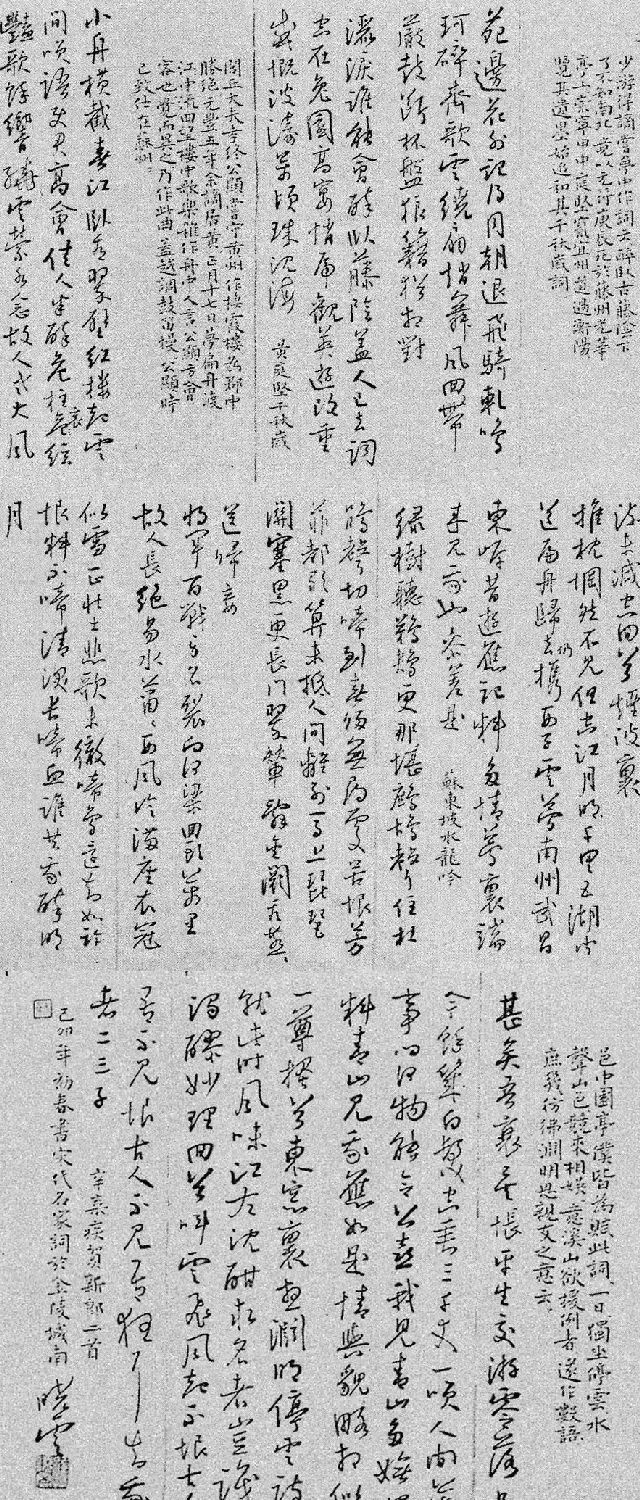 少游得謫嘗夢中作詞云醉臥古藤陰下
了不知南北竟以元符庚辰死於藤州光華
亭上崇寧甲申庭堅竄宜州道過衡陽
覽其遺墨始追和其千秋歲詞
苑邊花外記得同朝退飛騎軋鳴
珂碎齊歌雲繞扇趙舞風回帶
嚴鼓斷杯盤狼籍猶相對
灑淚誰能會醉臥藤陰蓋人已去詞
空在兔園高宴悄虎觀英遊改重
感慨波濤萬頃珠沈海 黃庭堅千秋歲
閭丘大夫孝終公顯嘗守黃州作棲霞樓為郡中
勝絕元豐五年余謫居黃正月十七日夢扁舟渡
江中流回望樓中歌樂雜作舟中人言公顯方會
客也覺而異之乃作此曲蓋越調鼓笛慢公顯時
已致仕在蘇州
小舟橫截春江臥看翠壁紅樓起雲
間笑語使君高會佳人半醉危柱哀絃
豔歌餘響繞雲縈水念故人老大風
流未減空回首煙波裏
推枕惘然不見但空江月明千里五湖聞
道扁舟歸去仍攜西子雲夢南州武昌
東岸昔遊應記料多情夢裏端
來見我也參差是 蘇東坡水龍吟
綠樹聽鵜鴂更那堪鷓鴣聲住杜
鵑聲切啼到春歸無尋處苦恨芳
菲都歇算未抵人間離別馬上琵琶
關塞黑更長門翠輦辭金闕看燕燕
送歸妾
將軍百戰身名裂向河梁回頭萬里
故人長絕易水蕭蕭西風冷滿座衣冠
似雪正壯士悲歌未徹啼鳥還知如許
恨料不啼清淚長啼血誰共我醉明
月
邑中園亭僕皆為賦此詞一日獨坐停雲水
聲山色競來相娛意溪山欲援例者遂作數語
庶幾彷彿淵明思親友之意云
甚矣吾衰矣悵平生交游零落
今餘幾白髮空垂三千丈一笑人間萬
事問何物能令公喜我見青山多嫵媚
料青山見我應如是情與貌略相似
一尊搔首東窗裏想淵明停雲詩
就此時風味江左沈酣求名者豈識
濁醪妙理回首叫雲飛風起不恨古人
吾不見恨古人不見吾狂耳知我
者二三子 辛棄疾賀新郎二首
己卯年初春書宋代名家詞於金陵城南